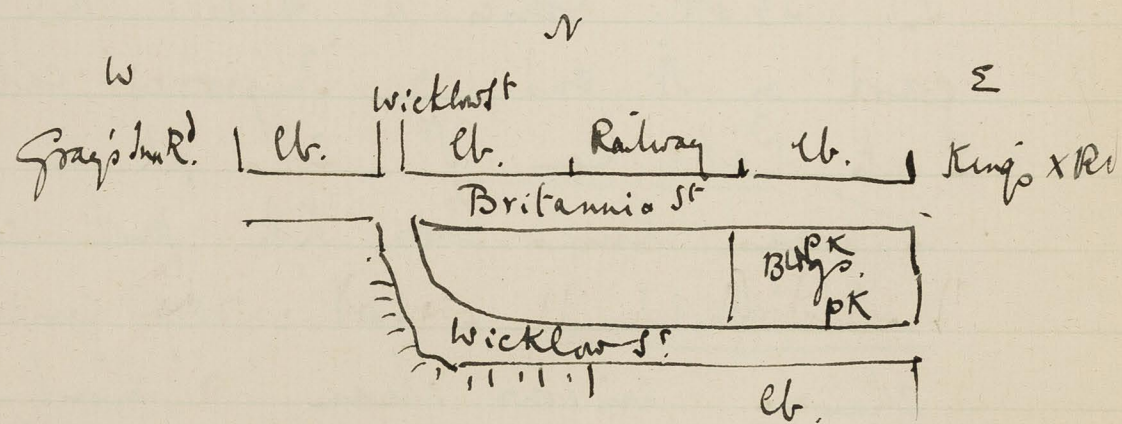 N
W
E
Wicklow St
Gray's Inn Rd.
lb.
lb.
Railway
lb.
King's X Rd
Britannia St
pk
Bldgs.
pk
Wicklow St.
lb.